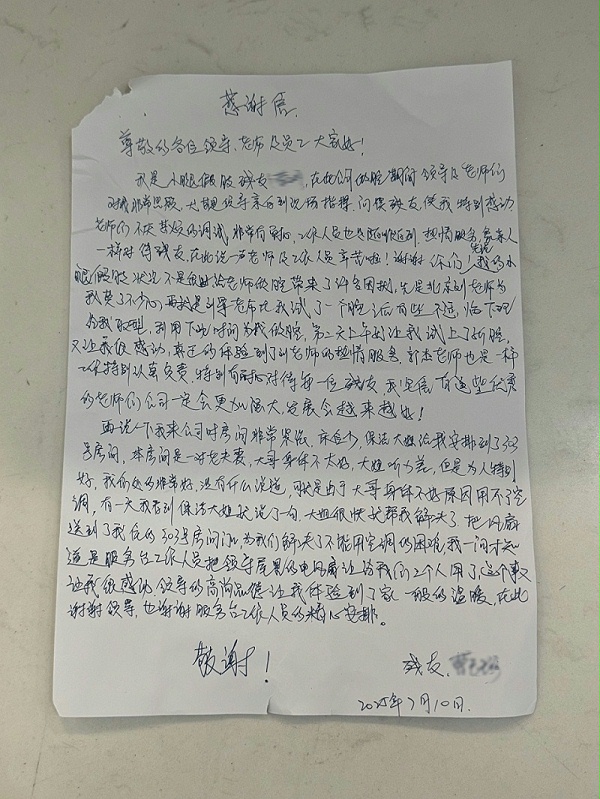 感谢信
尊敬的各位领导、老师及员工大家好！
我是小腿假肢残友 在此公司做腔期间领导及老师们
对我非常照顾，大靓领导亲自到现场指导，问侯残友使我特别感动
老师们不厌其烦的调试，非常有耐心，工作人员也 热情服务，象亲人
一样对待残友，在此说一声老师及工作人员辛苦啦！谢谢你们！我的小
腿假肢状况不是很好给老师做腔带来了许多困扰，先是北京刘老师为
我费了不少心，再就是刘 老师在我试了一个腔后有些不适，临下班
为我取型，利用下班时间为我做腔，第二天上午就让我试上了新腔，
又让我很感动，真正的体验到了刘老师的热情服务，郭杰老师也是一种
工作特别认真负责，特别有耐心对待每一位残友，我坚信有这些优秀
的老师们公司一定会更加强大，发展会越来越好！
再说一下我来公司时房间非常紧张，床位少，保洁大姐给我安排到了303
号房间，本房间是一对老夫妻，大哥身体不太好，大姐听力差，但是为人特别
好，我们处的非常好，没有什么说道，可就是由于大哥身体不好原因用不了空
调，有一天我看到保洁大姐就说了一句，大姐很快就帮我解决了，把风扇
送到了我住的303号房间 为我们解决了不能用空调的困难，我一问才知
道是服务台工作人员把领导屋里的电风扇让给我们2个人用了，这个事又
让我很感动，领导的高尚品德让我体验到了家一般的温暖，在此
谢谢领导，也谢谢服务台工作人员的精心安排。
敬谢！
残友：
2025年7月10日